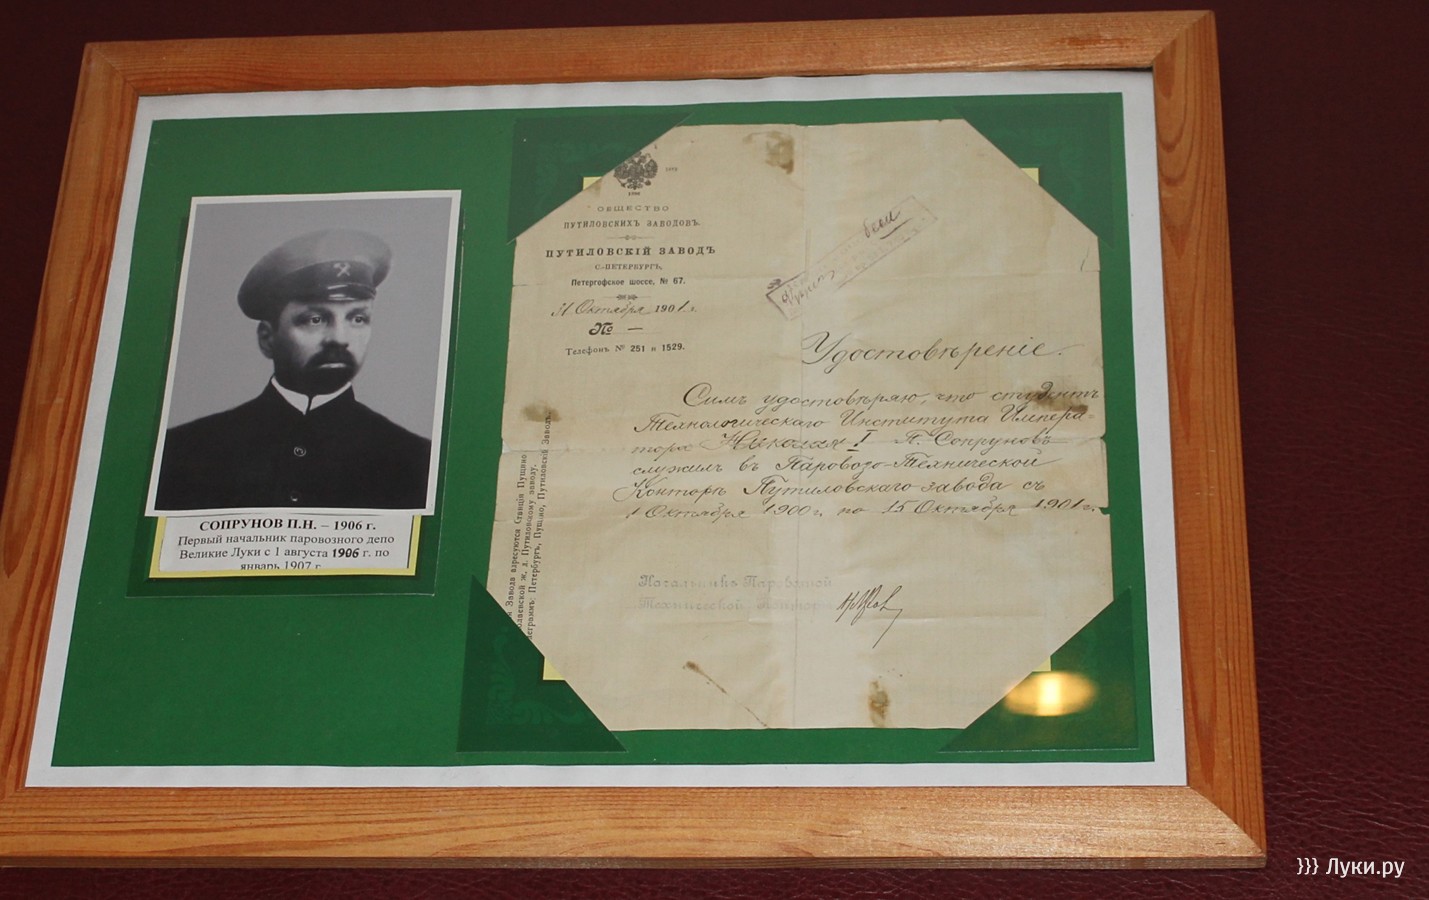 СОПРУНОВ П.Н. – 1906 г.
Первый начальник паровозного депо
Великие Луки с 1 августа 1906 г. по
январь 1907 г.
ОБЩЕСТВО
ПУТИЛОВСКИХЪ ЗАВОДОВЪ.
ПУТИЛОВСКІЙ ЗАВОДЪ
С.-ПЕТЕРБУРГЪ,
Петергофское шоссе, № 67.
31 Октября 1901 г.
№ —
Телефонъ № 251 и 1529.
Удостовѣреніе.
Симъ удостовѣряю, что студентъ
Технологическаго Института Импера-
тора Николая I П. Сопруновъ
служилъ въ Паровозо-Технической
Конторѣ Путиловскаго завода съ
1 Октября 1900 г. по 15 Октября 1901 г.
Начальникъ Паровозной
Технической Конторы
Завода адресуются Станція Пущино
ж. д. Путиловскому заводу.
Петербургъ, Пущино, Путиловскій Заводъ.
}}} Луки.ру